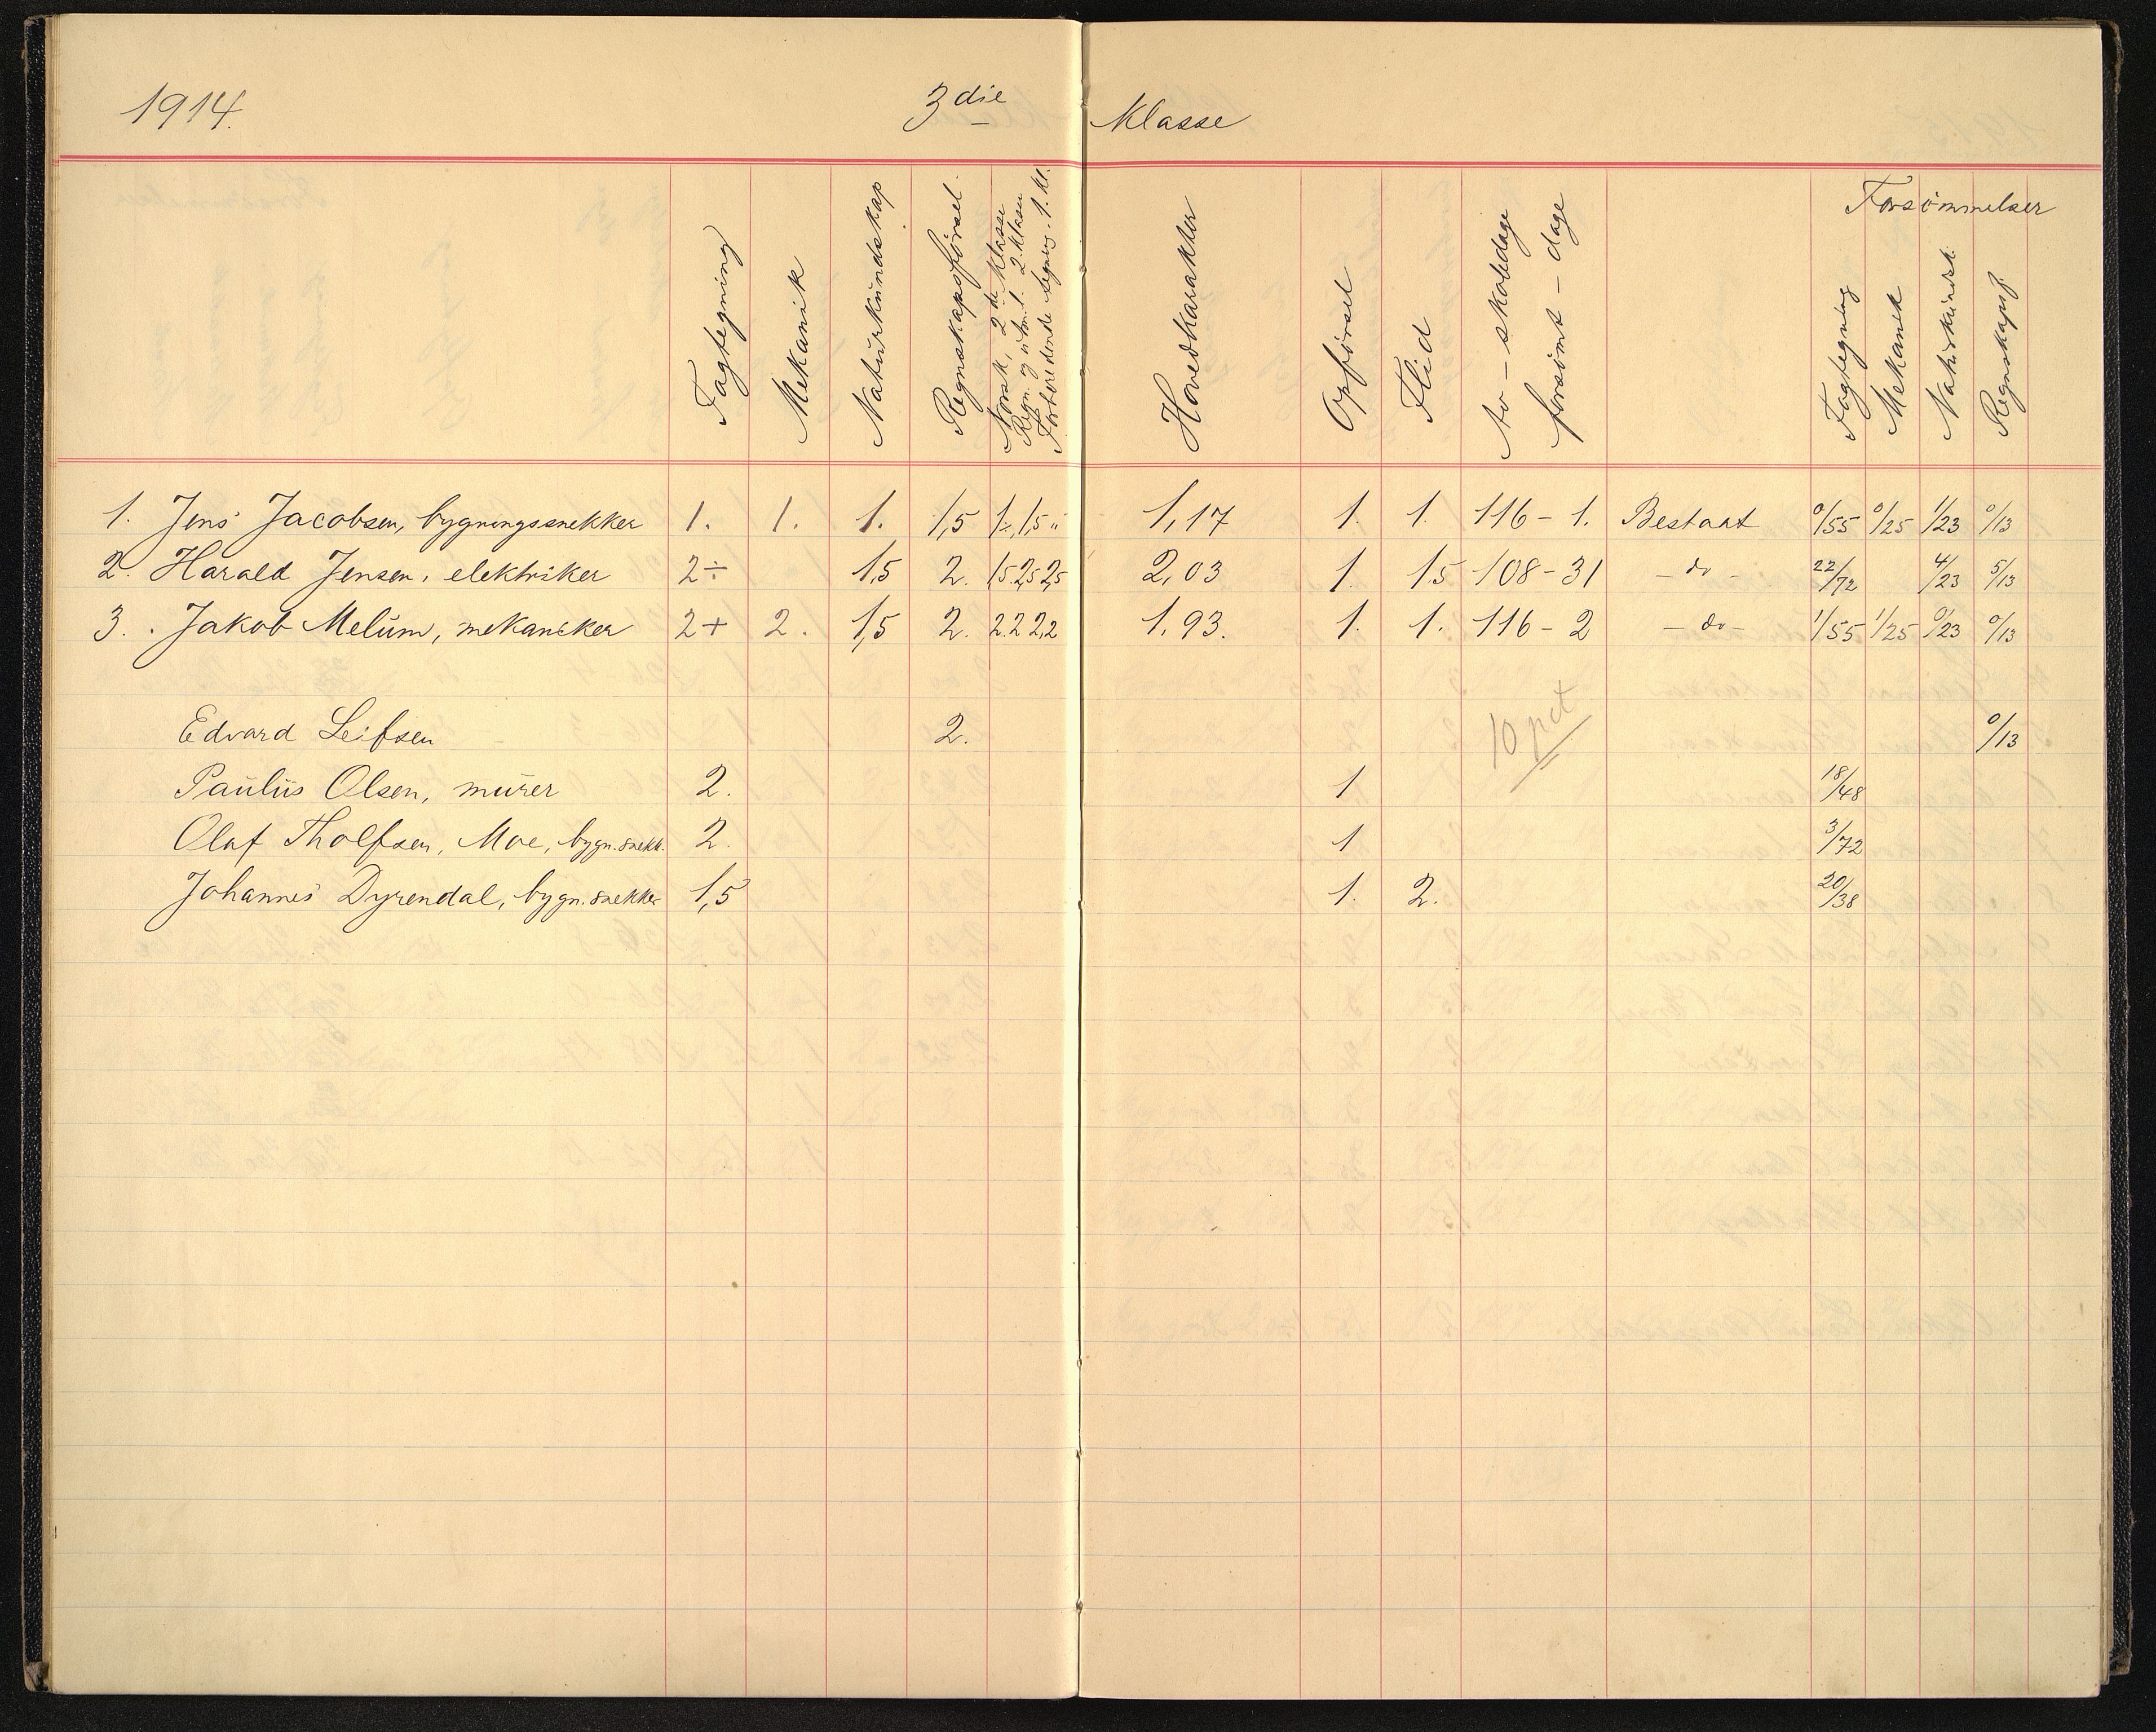 1914. 3die Klasse
Fagtegning
Mekanik
Naturkundskap
Regnskapsførsel.
Norsk, 2de klasse
Regn. og utm.l. 2. klasse
Forberedende tegning. 1. kl.
Hovedkarakter
Opførsel
Flid
Av - skoledage
forsømt - dage
Forsømmelser
Fagtegning
Mekanik
Naturkundsk.
Regnskapsf.
1. Jens Jacobsen, bygningssnekker 1. 1. 1. 1,5 1,17 1. 1. 116 - 1. Bestaat 0/55 0/25 1/23 0/13
2. Harald Jensen, elektriker 2÷ 1,5 2. 1,5 2,5 2,5 2,03 1. 1.5 108 - 31 - do - 22/72 4/23 5/13
3. Jakob Melum, mekaniker 2+ 2. 1,5 2. 2.2 2,2 1,93. 1. 1. 116 - 2 - do - 1/55 1/25 0/23 0/13
Edvard Leifsen 2. 10 pct 0/13
Paulus Olsen, murer 2. 1 18/48
Olaf Tholfsen, Moe, bygn.snekk. 2. 1 3/72
Johannes Dyrendal, bygn.snekker 1,5 1. 2. 20/38